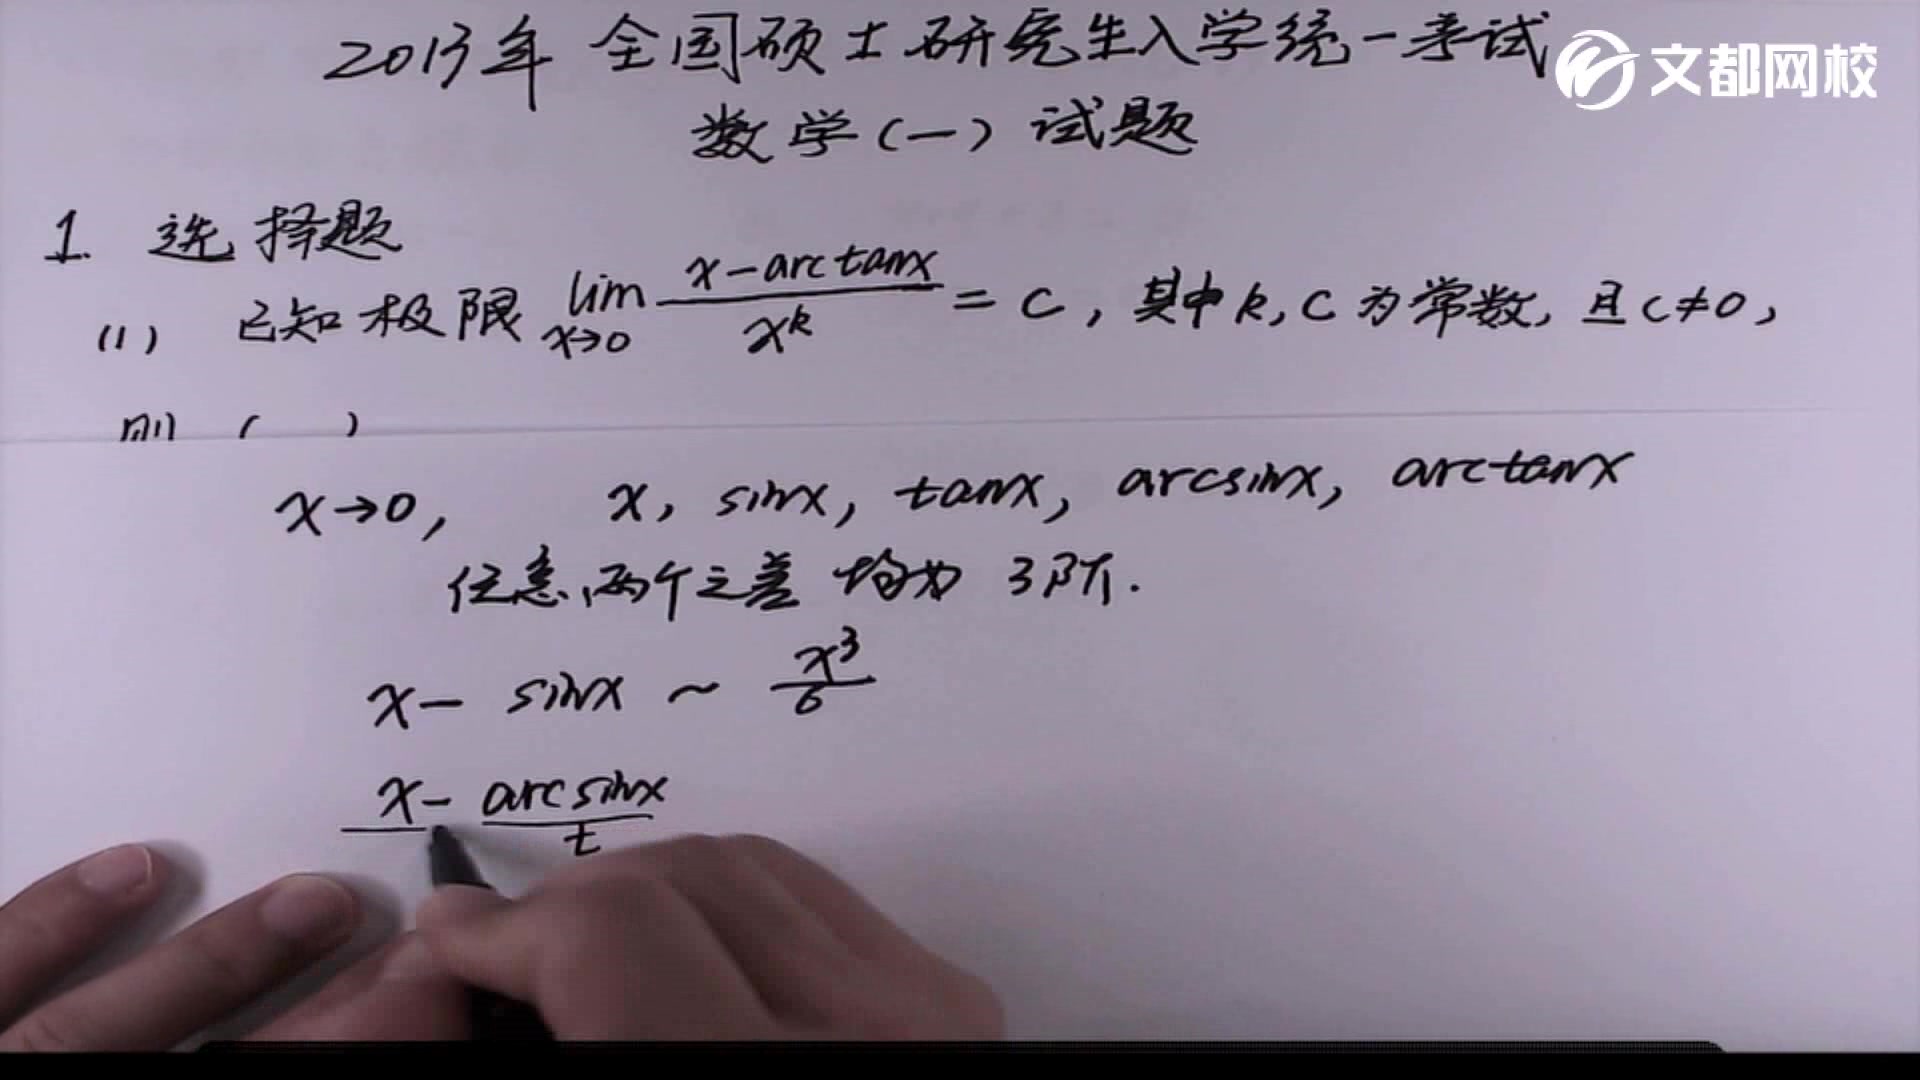 2013年 全国硕士研究生入学统一考试
文都网校
数学(一)试题
1. 选择题
(1) 已知极限 lim x→0 (x-arctanx)/x^k = C, 其中k,C为常数, 且C≠0,
则 ( )
x→0, x, sinx, tanx, arcsinx, arctanx
任意两个之差 均为 3阶.
x- sinx ~ x³/6
x- arcsinx
t